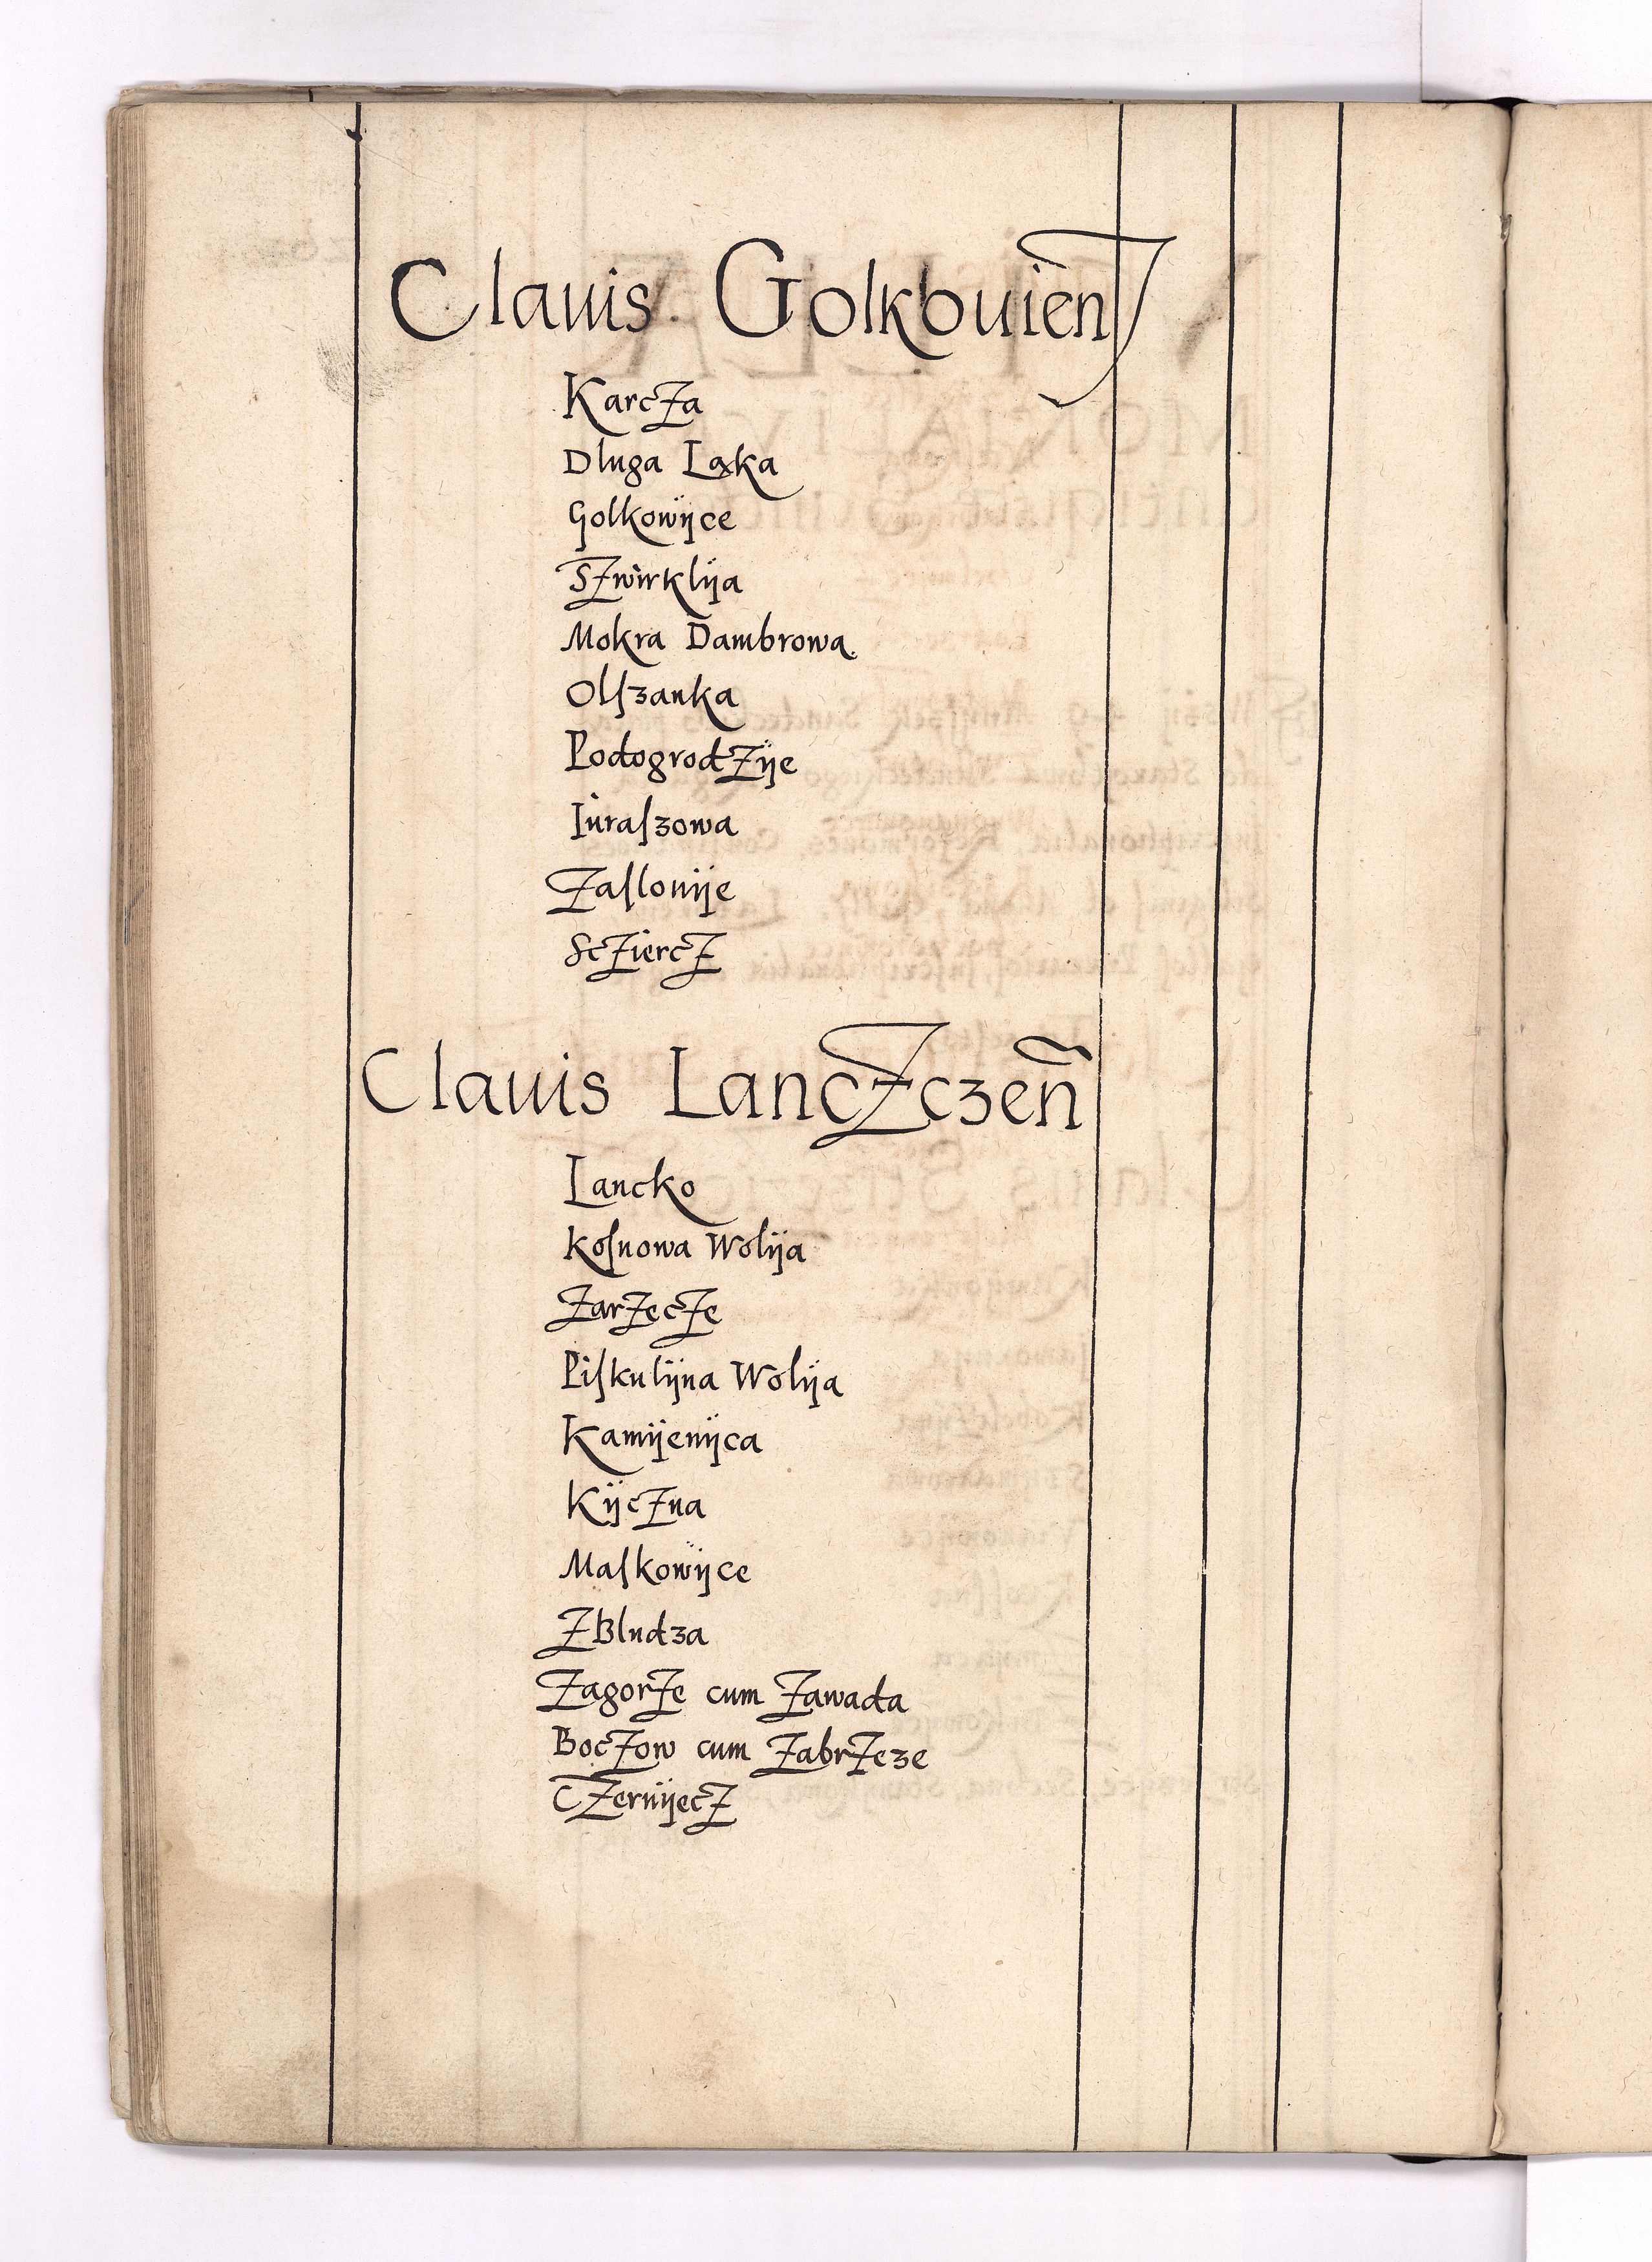 Clauis Golkouień
KarcZa
Dluga Ląka
Golkowÿce
SZwirklÿa
Mokra Dambrowa
Olſzanka
PodogrodZÿe
Iuraſzowa
Zaſlonÿe
ScZiercZ
Clauis LancZczen̄
Lancko
Koſnowa Wolÿa
ZarZecZe
Piſkulÿna Wolÿa
Kamÿenÿca
KÿcZna
Maſkowÿce
ZBludza
ZagorZe cum Zawada
BocZow cum ZabrZeze
CZernÿecZ